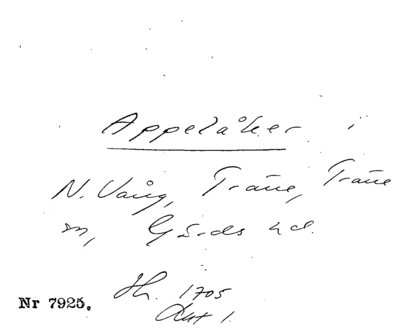 Appelåker i
N. Vång, Träne, Träne
sn, Gärds hd.
Jh. 1705
Akt 1.
Nr 7925.